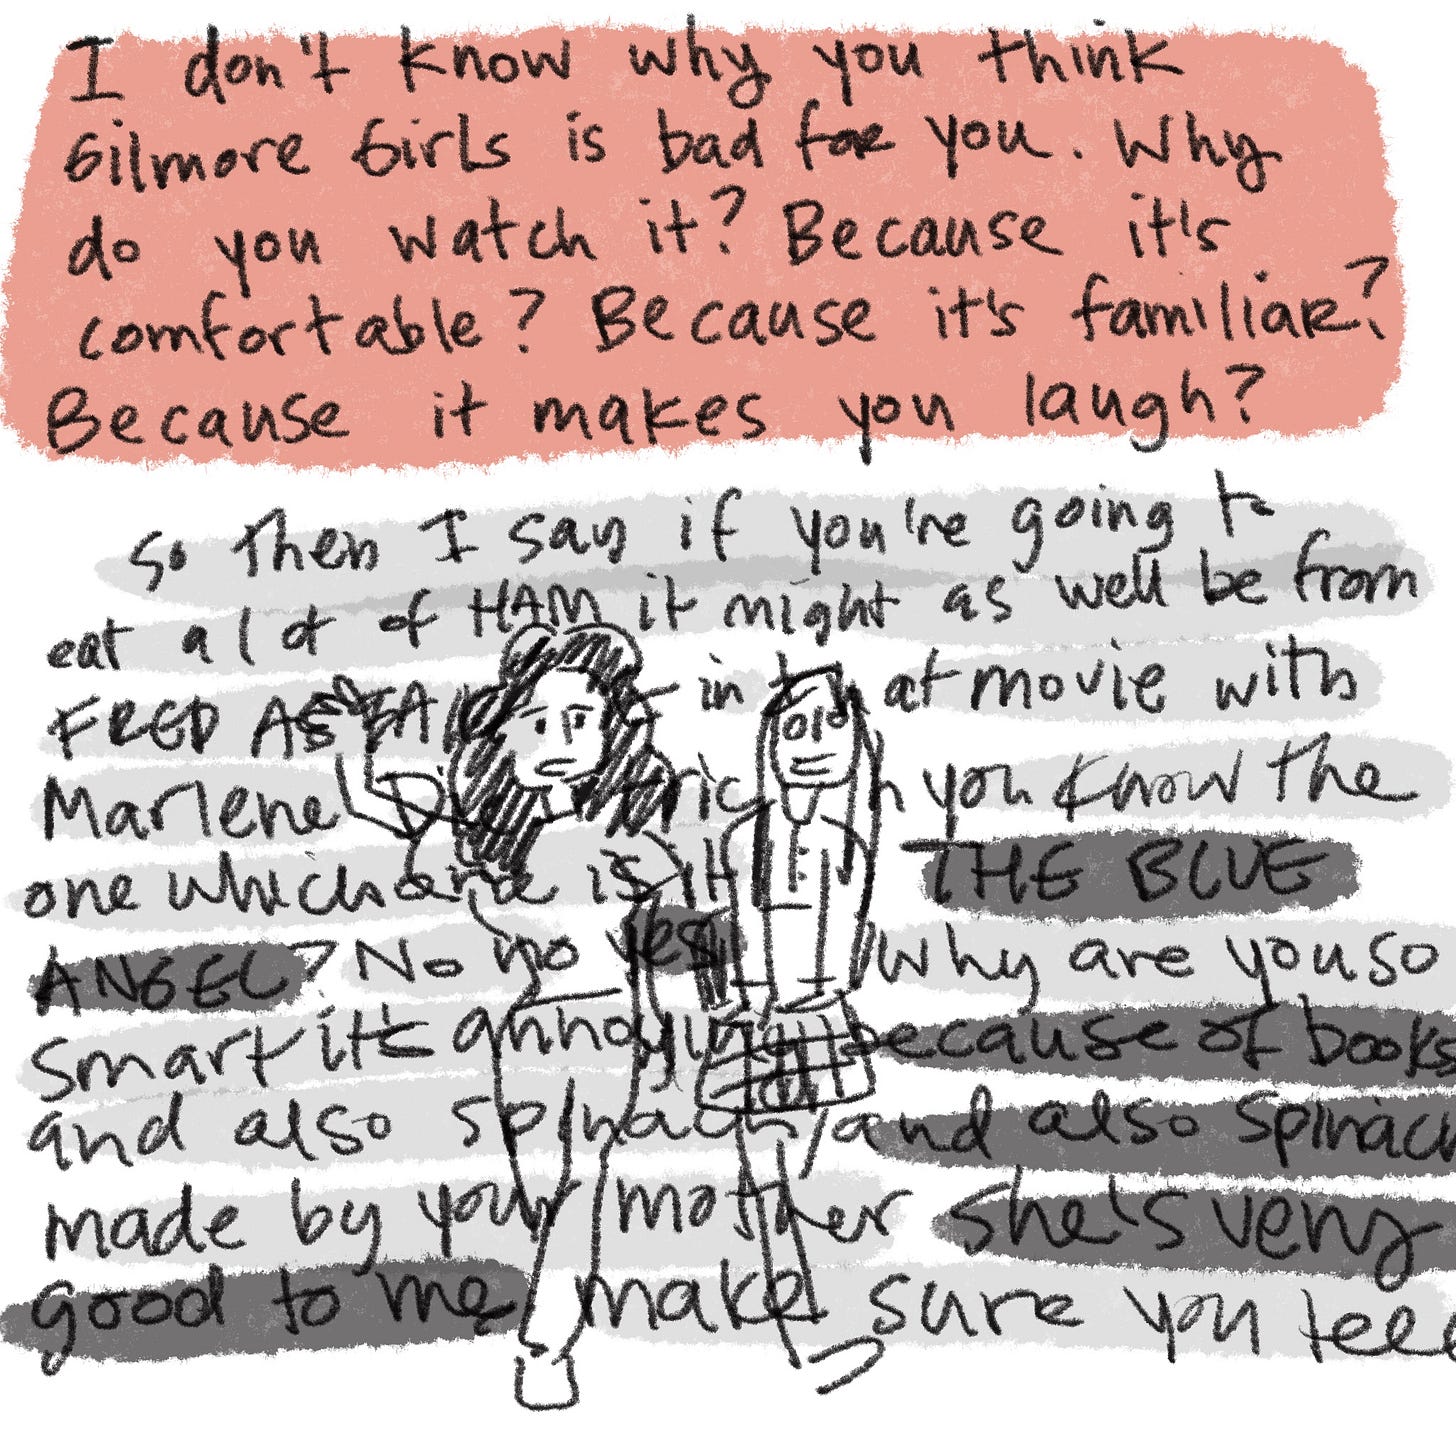 I don't know why you think
Gilmore Girls is bad for you. Why
do you watch it? Because it's
comfortable? Because it's familiar?
Because it makes you laugh?
So then I say if you're going to
eat a lot of HAM it might as well be from
FRED ASTAI in t at movie with
Marlene Di tric h you know the
one which one is it THE BLUE
ANGEL? No no yes why are you so
smart it's annoying because of books
and also spinach and also spinach
made by your mother she's very
good to me make sure you tell